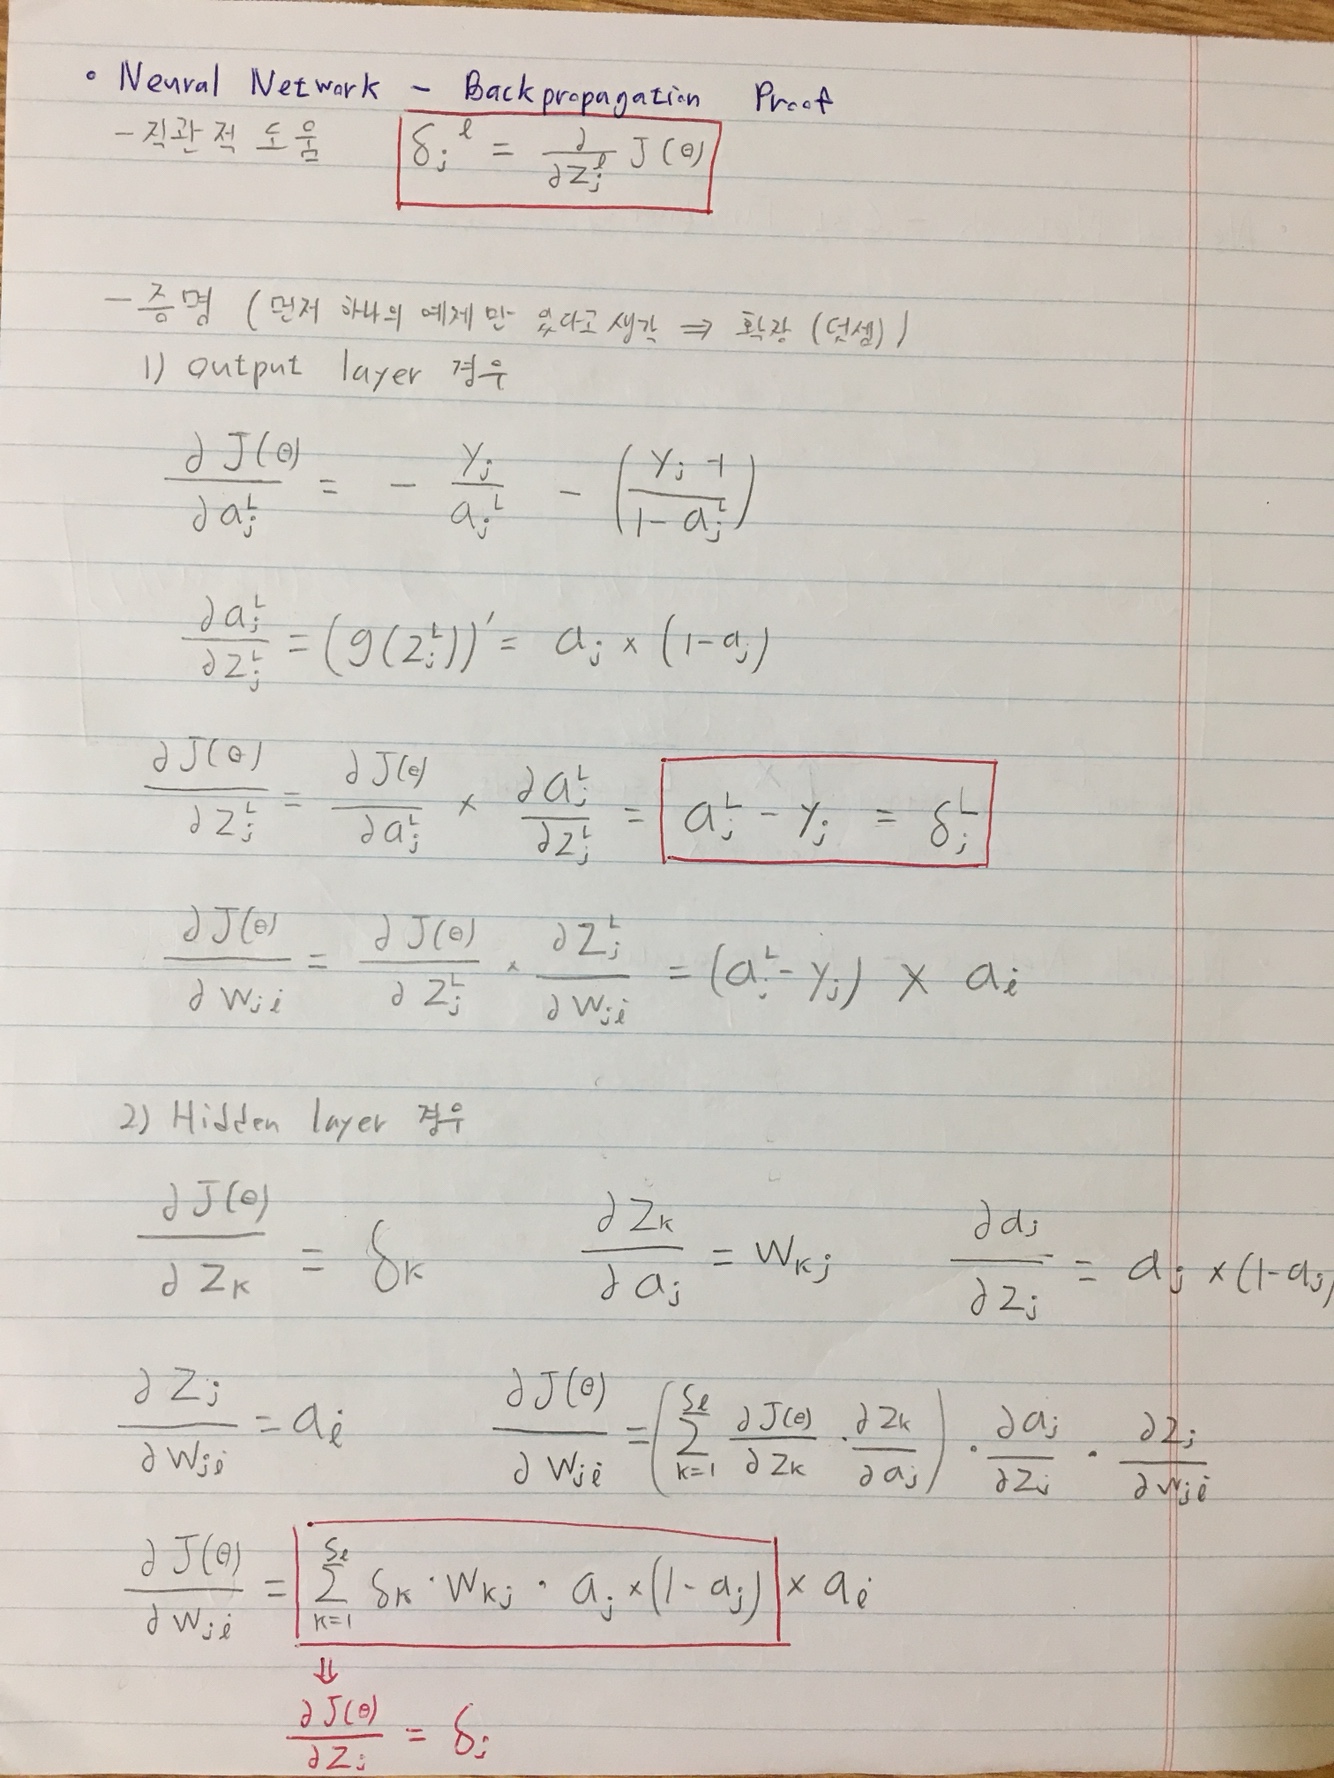 • Neural Network – Backpropagation Proof
– 직관적 도움 δⱼˡ = ∂/∂Zⱼˡ J(θ)
– 증명 (먼저 하나의 예제만 있다고 생각 ⇒ 확장 (덧셈))
1) Output layer 경우
∂J(θ)/∂aⱼᴸ = – yⱼ/aⱼᴸ – ((yⱼ-1)/(1-aⱼᴸ))
∂aⱼᴸ/∂Zⱼᴸ = (g(Zⱼᴸ))' = aⱼ × (1-aⱼ)
∂J(θ)/∂Zⱼᴸ = ∂J(θ)/∂aⱼᴸ × ∂aⱼᴸ/∂Zⱼᴸ = aⱼᴸ - yⱼ = δⱼᴸ
∂J(θ)/∂Wⱼᵢ = ∂J(θ)/∂Zⱼᴸ × ∂Zⱼᴸ/∂Wⱼᵢ = (aⱼᴸ - yⱼ) × aᵢ
2) Hidden layer 경우
∂J(θ)/∂Zₖ = δₖ ∂Zₖ/∂aⱼ = Wₖⱼ ∂aⱼ/∂Zⱼ = aⱼ × (1-aⱼ)
∂Zⱼ/∂Wⱼᵢ = aᵢ ∂J(θ)/∂Wⱼᵢ = (∑ₖ₌₁^Sₗ ∂J(θ)/∂Zₖ · ∂Zₖ/∂aⱼ) · ∂aⱼ/∂Zⱼ · ∂Zⱼ/∂Wⱼᵢ
∂J(θ)/∂Wⱼᵢ = ∑ₖ₌₁^Sₗ δₖ · Wₖⱼ · aⱼ × (1-aⱼ) × aᵢ
⇓
∂J(θ)/∂Zⱼ = δⱼ